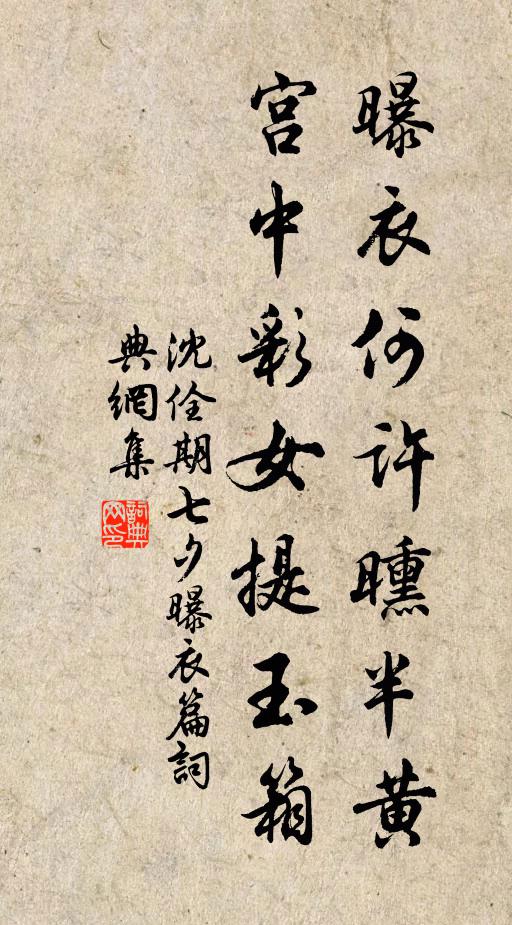 曝衣何许曛半黄
宫中彩女提玉箱
沈佺期七夕曝衣篇詞
典網集
詞典網印